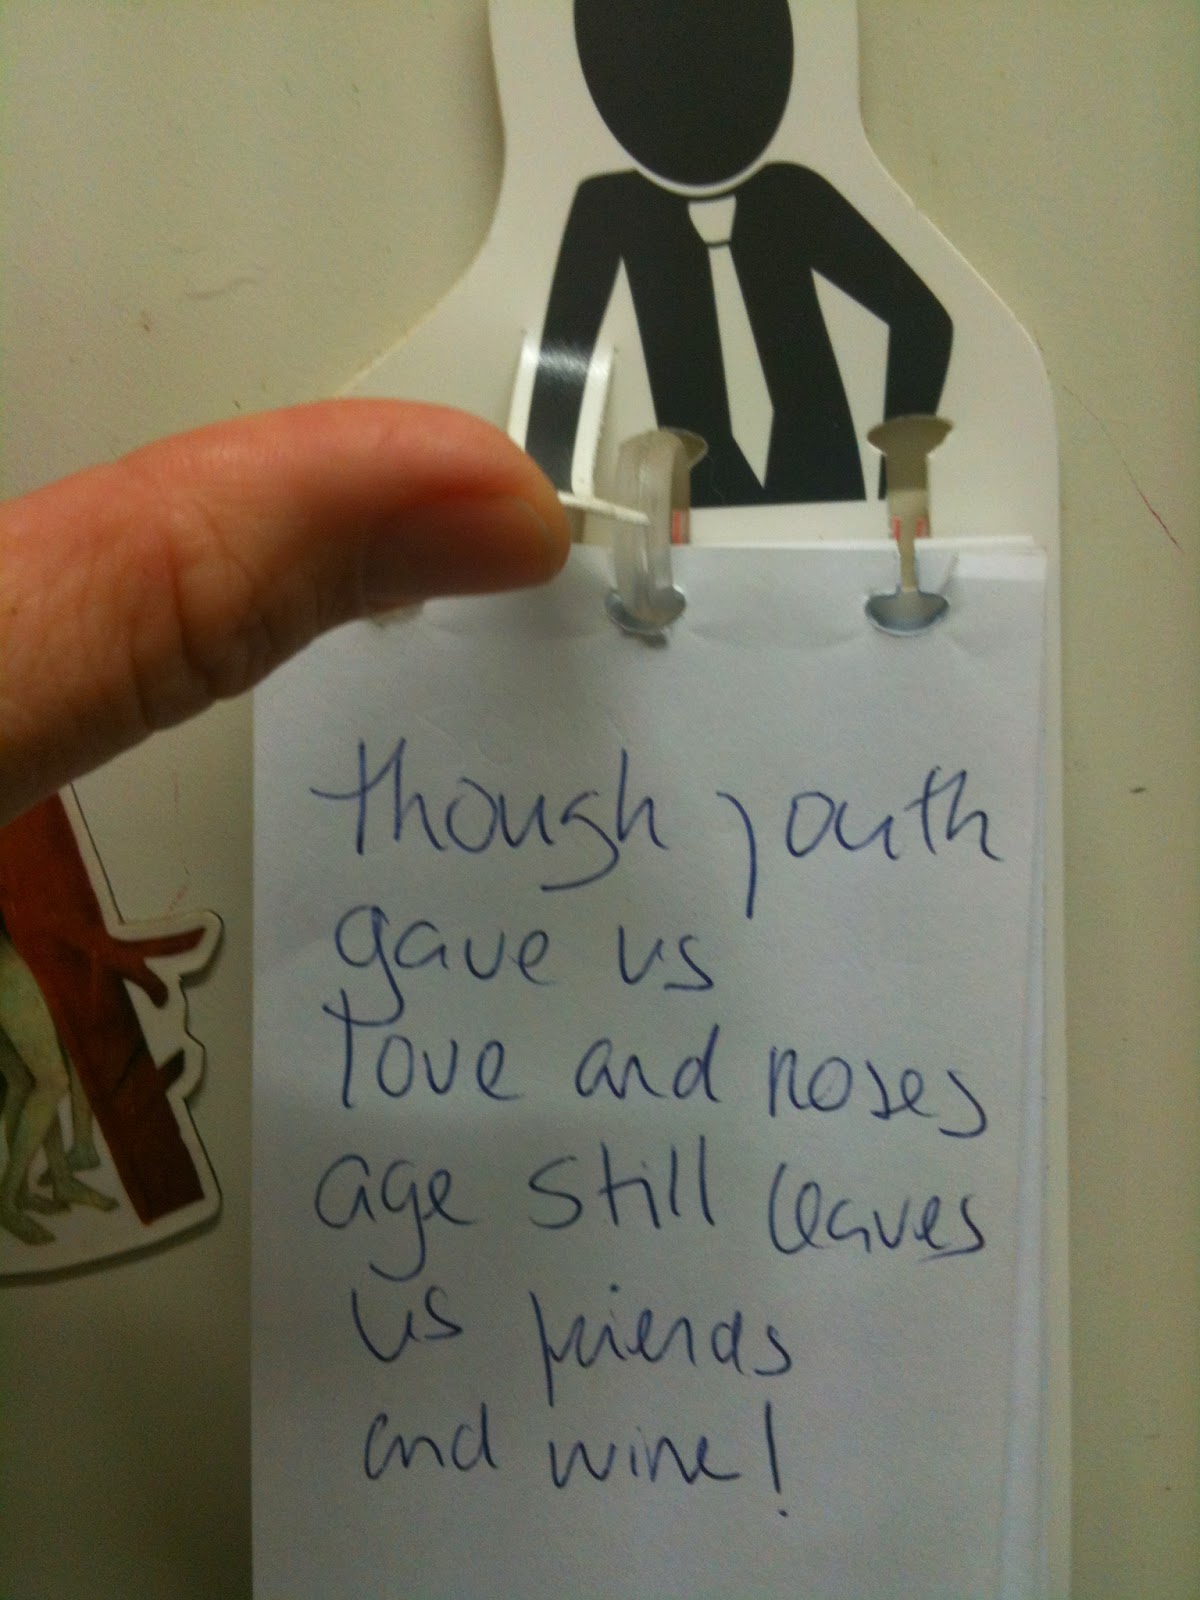 though youth
gave us
love and roses
age still leaves
us friends
and wine!